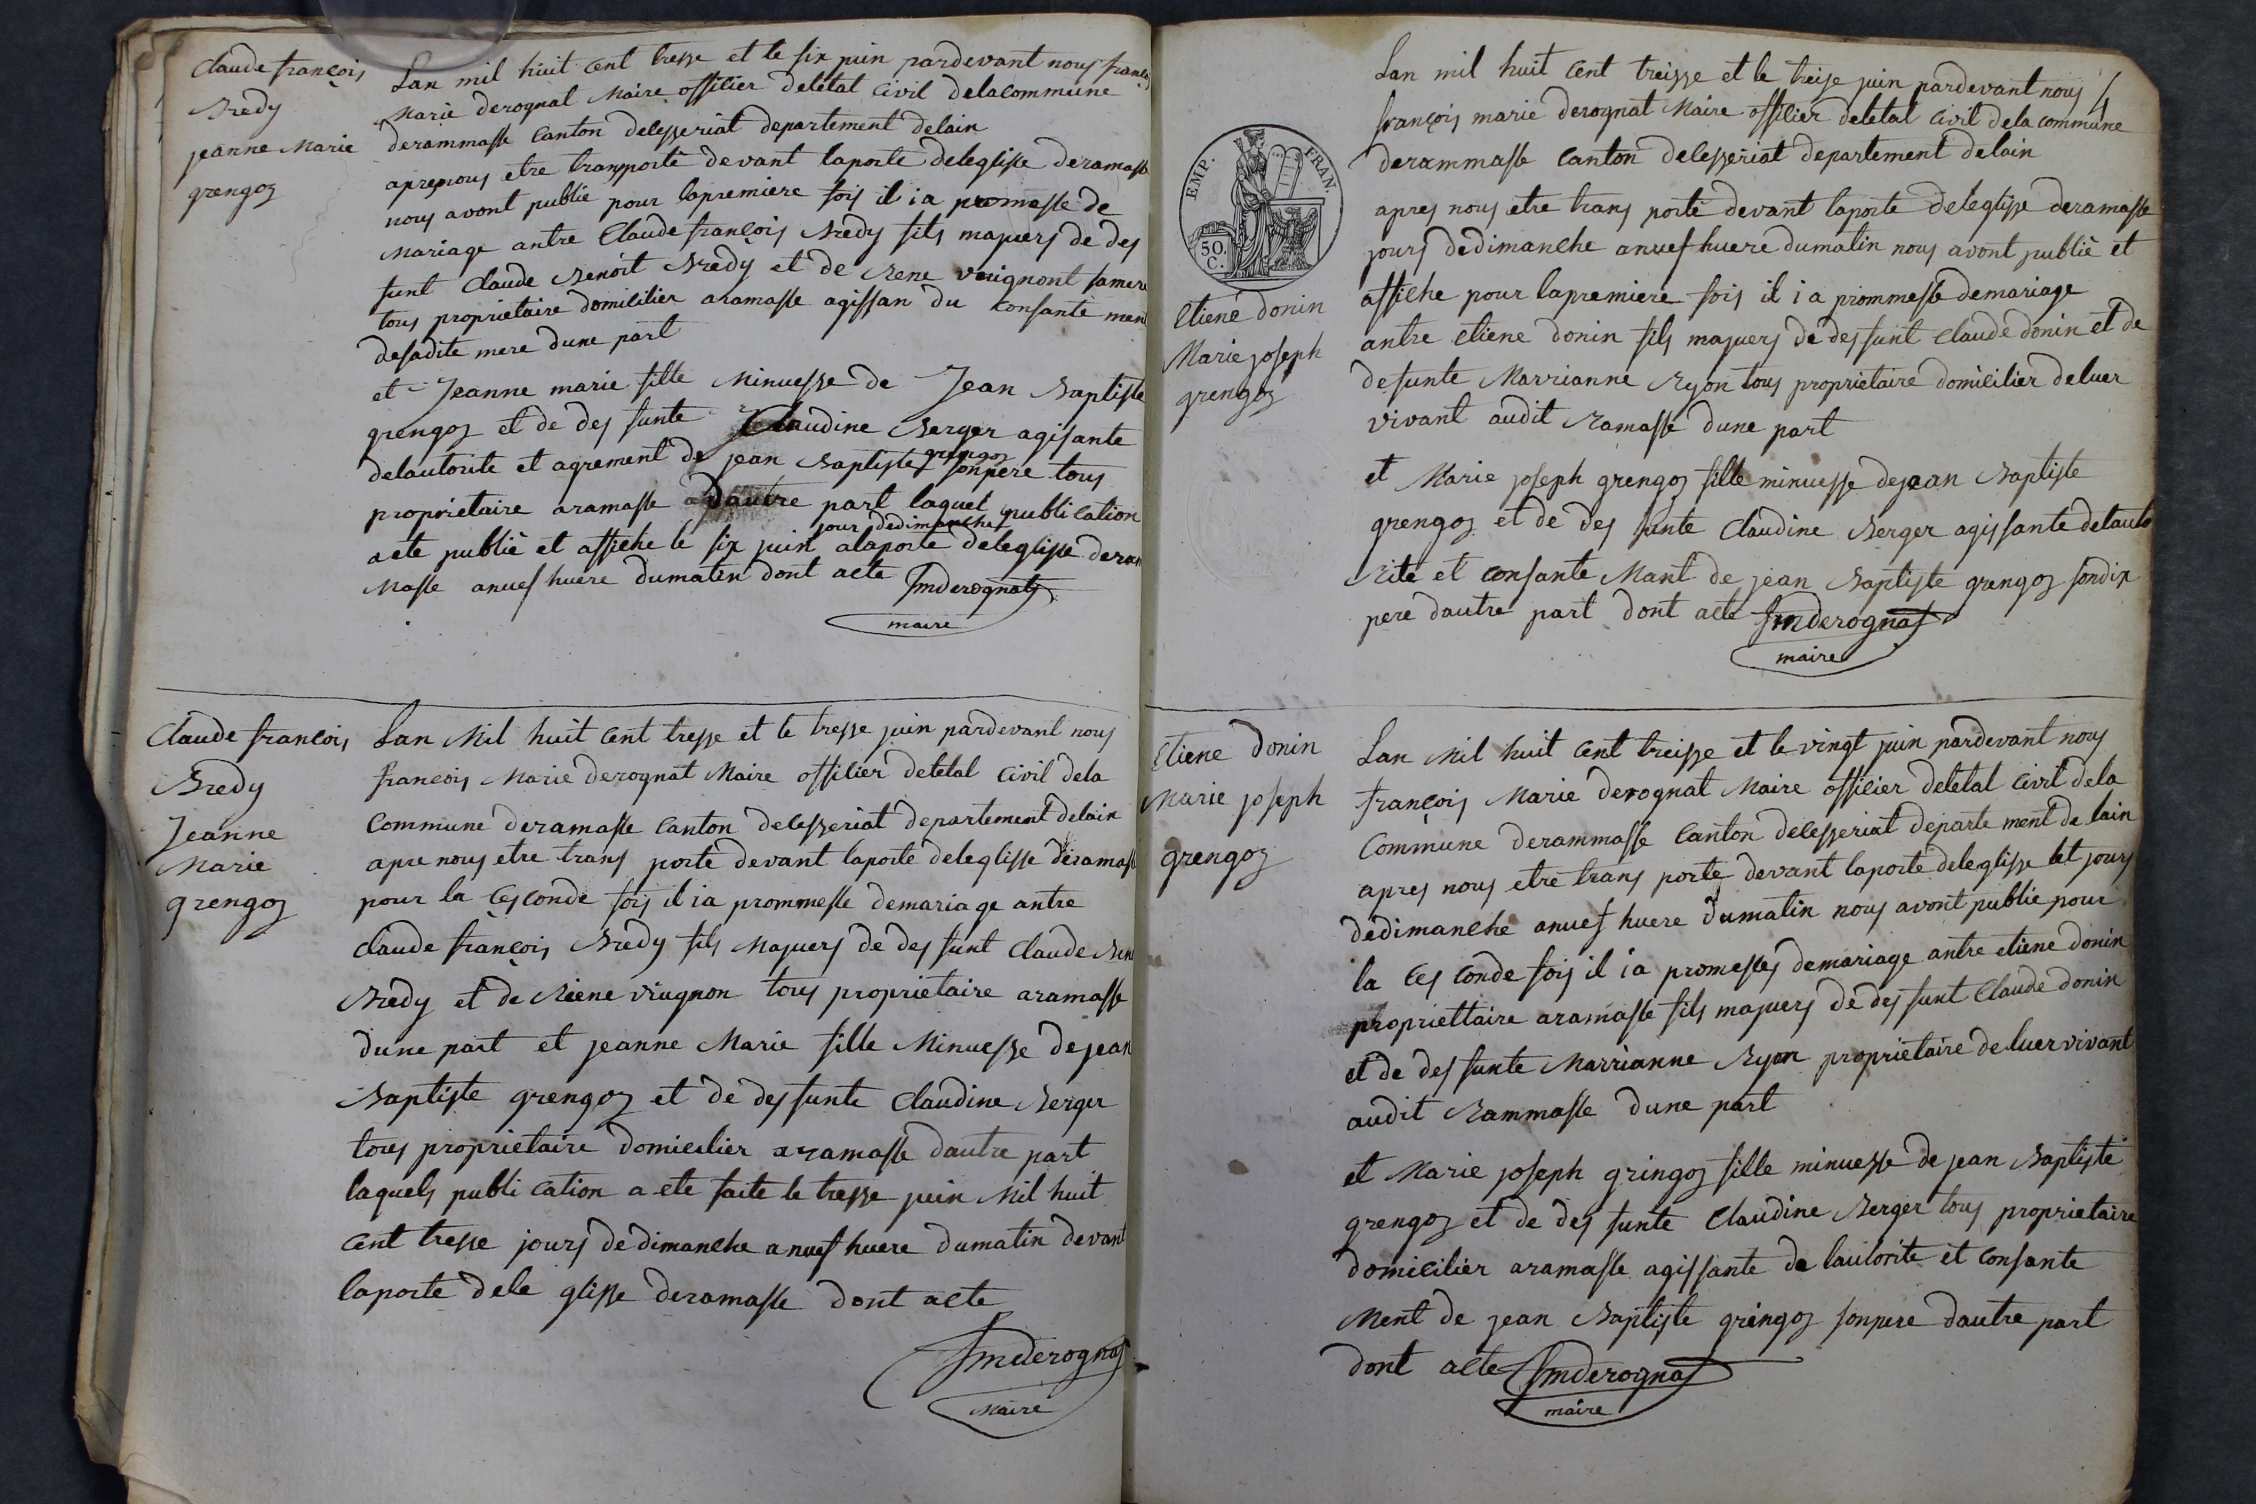 Claude françois
Bredy
jeanne Marie
grengoz
Lan mil huit cent tresze et le six juin pardevant nous françois
Marie derognat Maire officier deletat civil delacommune
derammasse Canton deCesseriat departement delain
apresnous etre transporté devant laporte deleglisse deramasse
nous avont publié pour lapremiere fois il i a promesse de
Mariage antre Claude françois Bredy fils majuers de des
funt Claude Benoit Bredy et de Rene vuignont samere
tous proprietaire domicilier aramasse agissan du Consante ment
desadite mere dune part
et Jeanne marie fille Minuesse de Jean Baptiste
grengoz et de des funte Claudine Berger agisante
delautorite et agrement de jean Baptiste grengoz sonpere tous
proprietaire aramasse dautre part laquel publication
a ete publié et affiche le six juin jour dedimanche alaporte deleglisse dera
Masse anuef huere dumaten dont acte fmderognat
maire
Claude françois
Bredy
Jeanne
Marie
grengoz
Lan Mil huit cent tresze et le tresze juin pardevant nous
françois Marie derognat Maire officier deletat civil dela
Commune deramasse Canton deCesseriat departement delain
apre nous etre trans porte devant laporte deleglisse deramasse
pour la Cesconde fois il ia prommesse demariage antre
Claude françois Bredy fils Majuers de des funt Claude Ben
Bredy et de Riene viugnon tous proprietaire aramasse
dune part et jeanne Marie fille Minuesse de jean
Baptiste grengoz et de des funte Claudine Berger
tous proprietaire domicilier aramasse dautre part
laquels publi cation a ete faite le tresze juin Mil huit
Cent tresse jours de dimanche a nuef huere dumatin devant
laporte dele glisse deramasse dont acte
fmderognat
Maire
4
EMP. FRAN.
50.
C.
Etiene donin
Marie joseph
grengoz
Lan mil huit Cent treisze et le treise juin pardevant nous
françois marie derognat Maire officier deletat Civil dela commune
derammasse Canton deCesseriat departement delain
apres nous etre trans porté devant laporte deleglisse deramasse
jours dedimanche anuef huere dumatin nous avont publié et
affiche pour lapremiere fois il i a prommesse demariage
antre etiene donin fils majuers de desfunt Claude donin et de
defunte Marrianne Ryon tous proprietaire domicilier deluer
vivant audit Ramasse dune part
et Marie joseph grengoz fille minuesse dejean Baptiste
grengoz et de des funte Claudine Berger agissante delauto
Rite et Consante Mant de jean Baptiste grengoz sondix
pere dautre part dont acte fmderognat
maire
Etiene donin
Marie joseph
grengoz
Lan Mil huit Cent treisze et le vingt juin pardevant nous
françois Marie derognat Maire officier deletat Civil dela
Commune derammasse Canton deCesseriat departe ment de lain
apres nous etre trans porté devant laporte deleglisse let jours
dedimanche anuef huere dumatin nous avont publie pour
la Ces Conde fois il i a promesses demariage antre etiene donin
propriettaire aramasse fils majuers de des funt Claude donin
et de des funte Marrianne Ryon proprietaire de luer vivant
audit Rammasse dune part
et Marie joseph gringoz fille minuesse de jean Baptiste
grengoz et de des funte Claudine Berger tous proprietaire
domicilier aramasse agissante de lautorite et Consante
Ment de jean Baptiste gringoz sonpere dautre part
dont acte fmderognat
maire